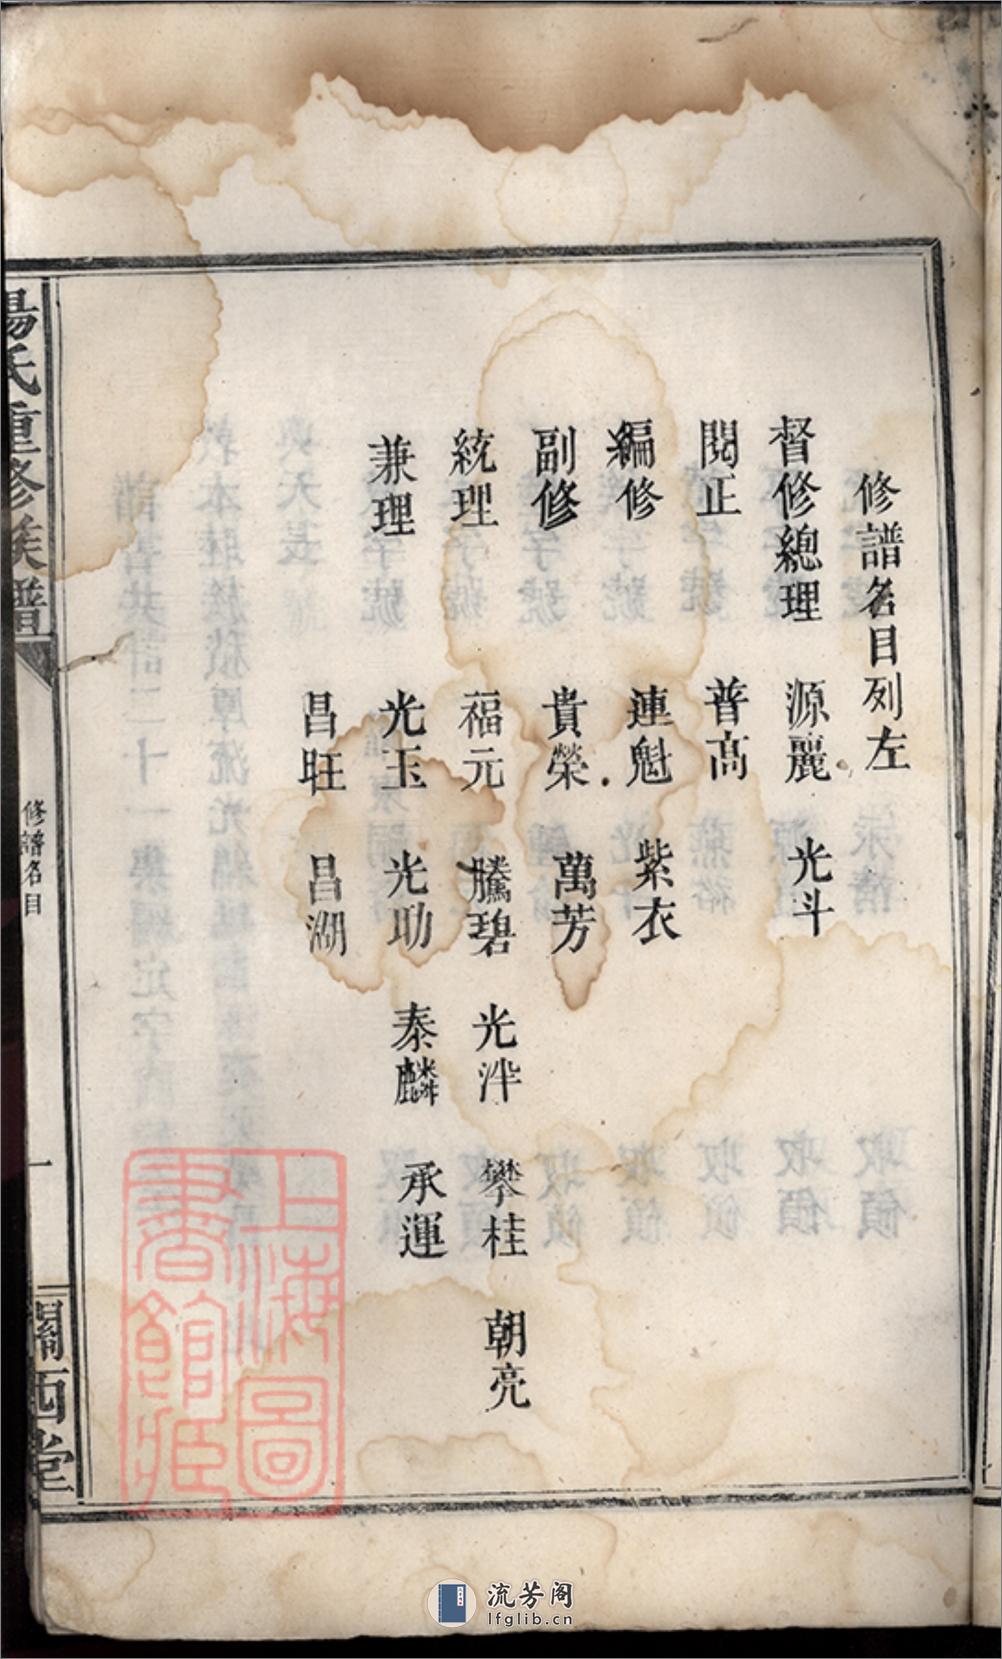 修譜名目列左
督修總理 源麗 光斗
閱正 普高
編修 連魁 紫衣
副修 貴榮 萬芳
統理 福元 騰碧 光泮 攀桂 朝亮
兼理 光玉 光助 泰麟 承運
昌旺 昌湖
楊氏重修族譜
修譜名目
一
關西堂
上海圖
書館藏
流芳阁
lfglib.cn